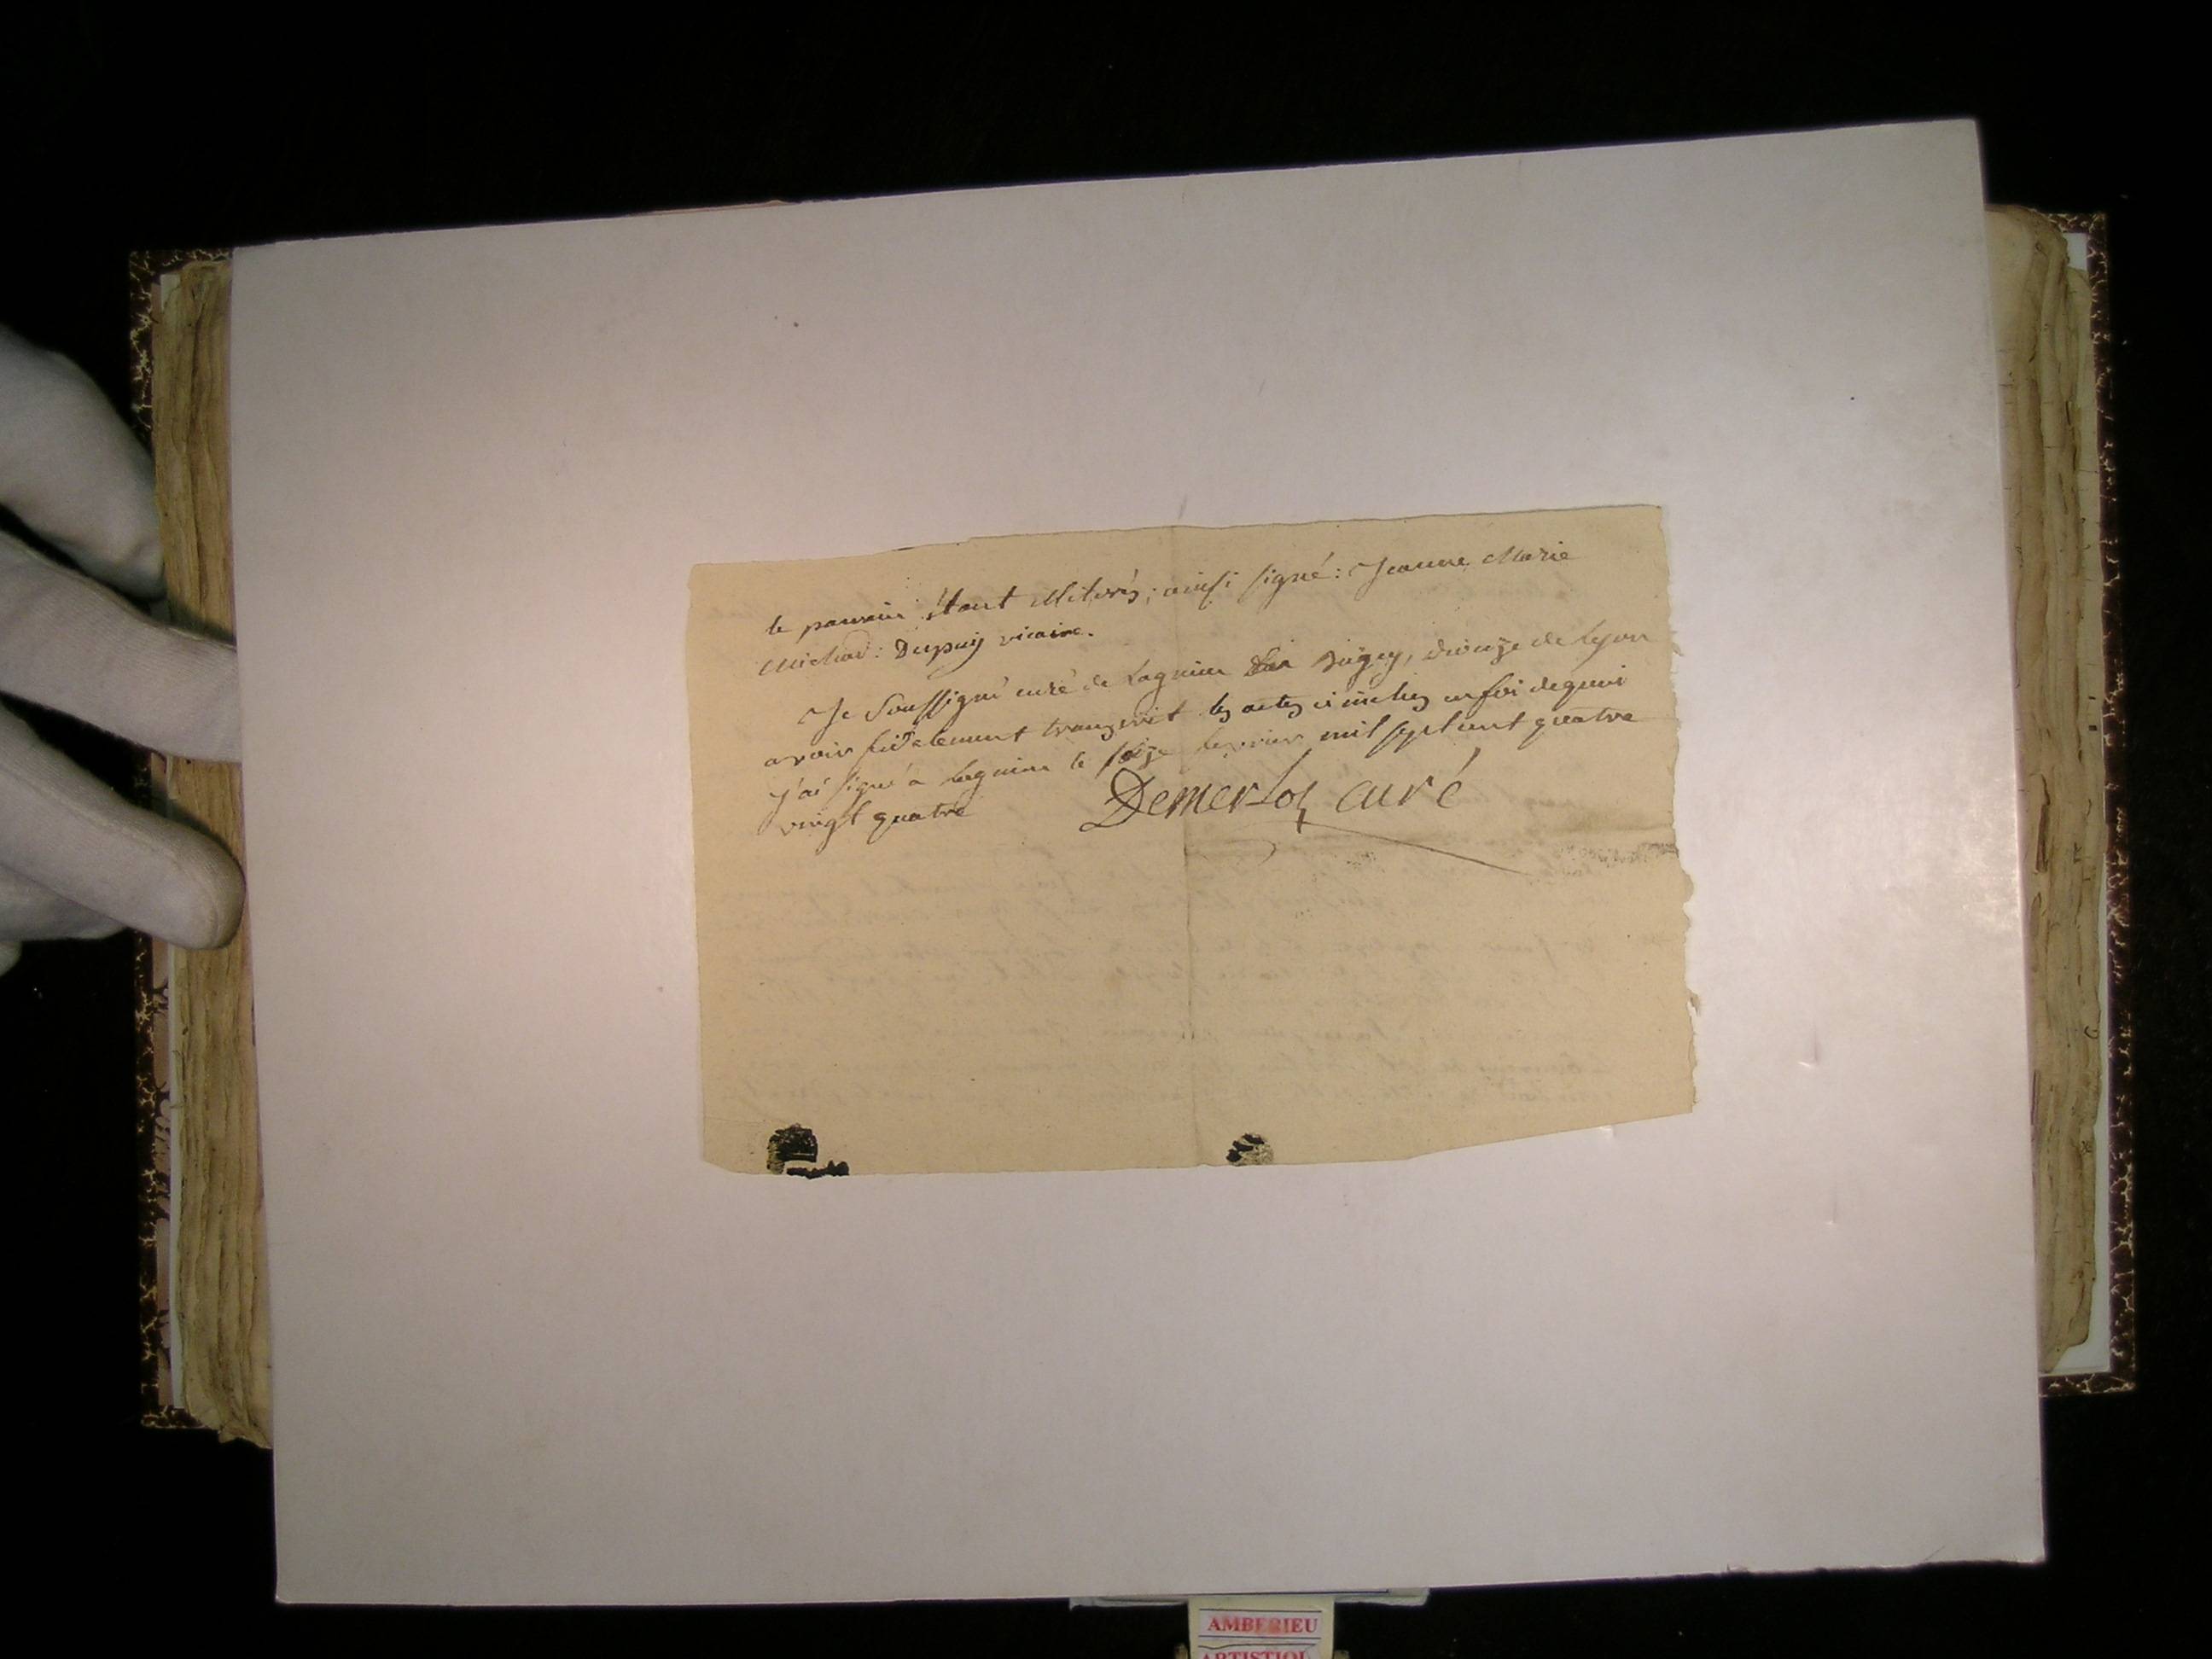 le parrain étant illiterés ; ainsi signé : Jeanne Marie
Michoud : Dupuy vicaire.
Je soussigné curé de Lagnieu en Bugey, diocèze de Lyon
avoir fidelement transcrit les actes ci inclus en foi de quoi
j'ai signé a Lagnieu le seize fevrier mil sept cent quatre
vingt quatre
Demerloz curé
AMBERIEU